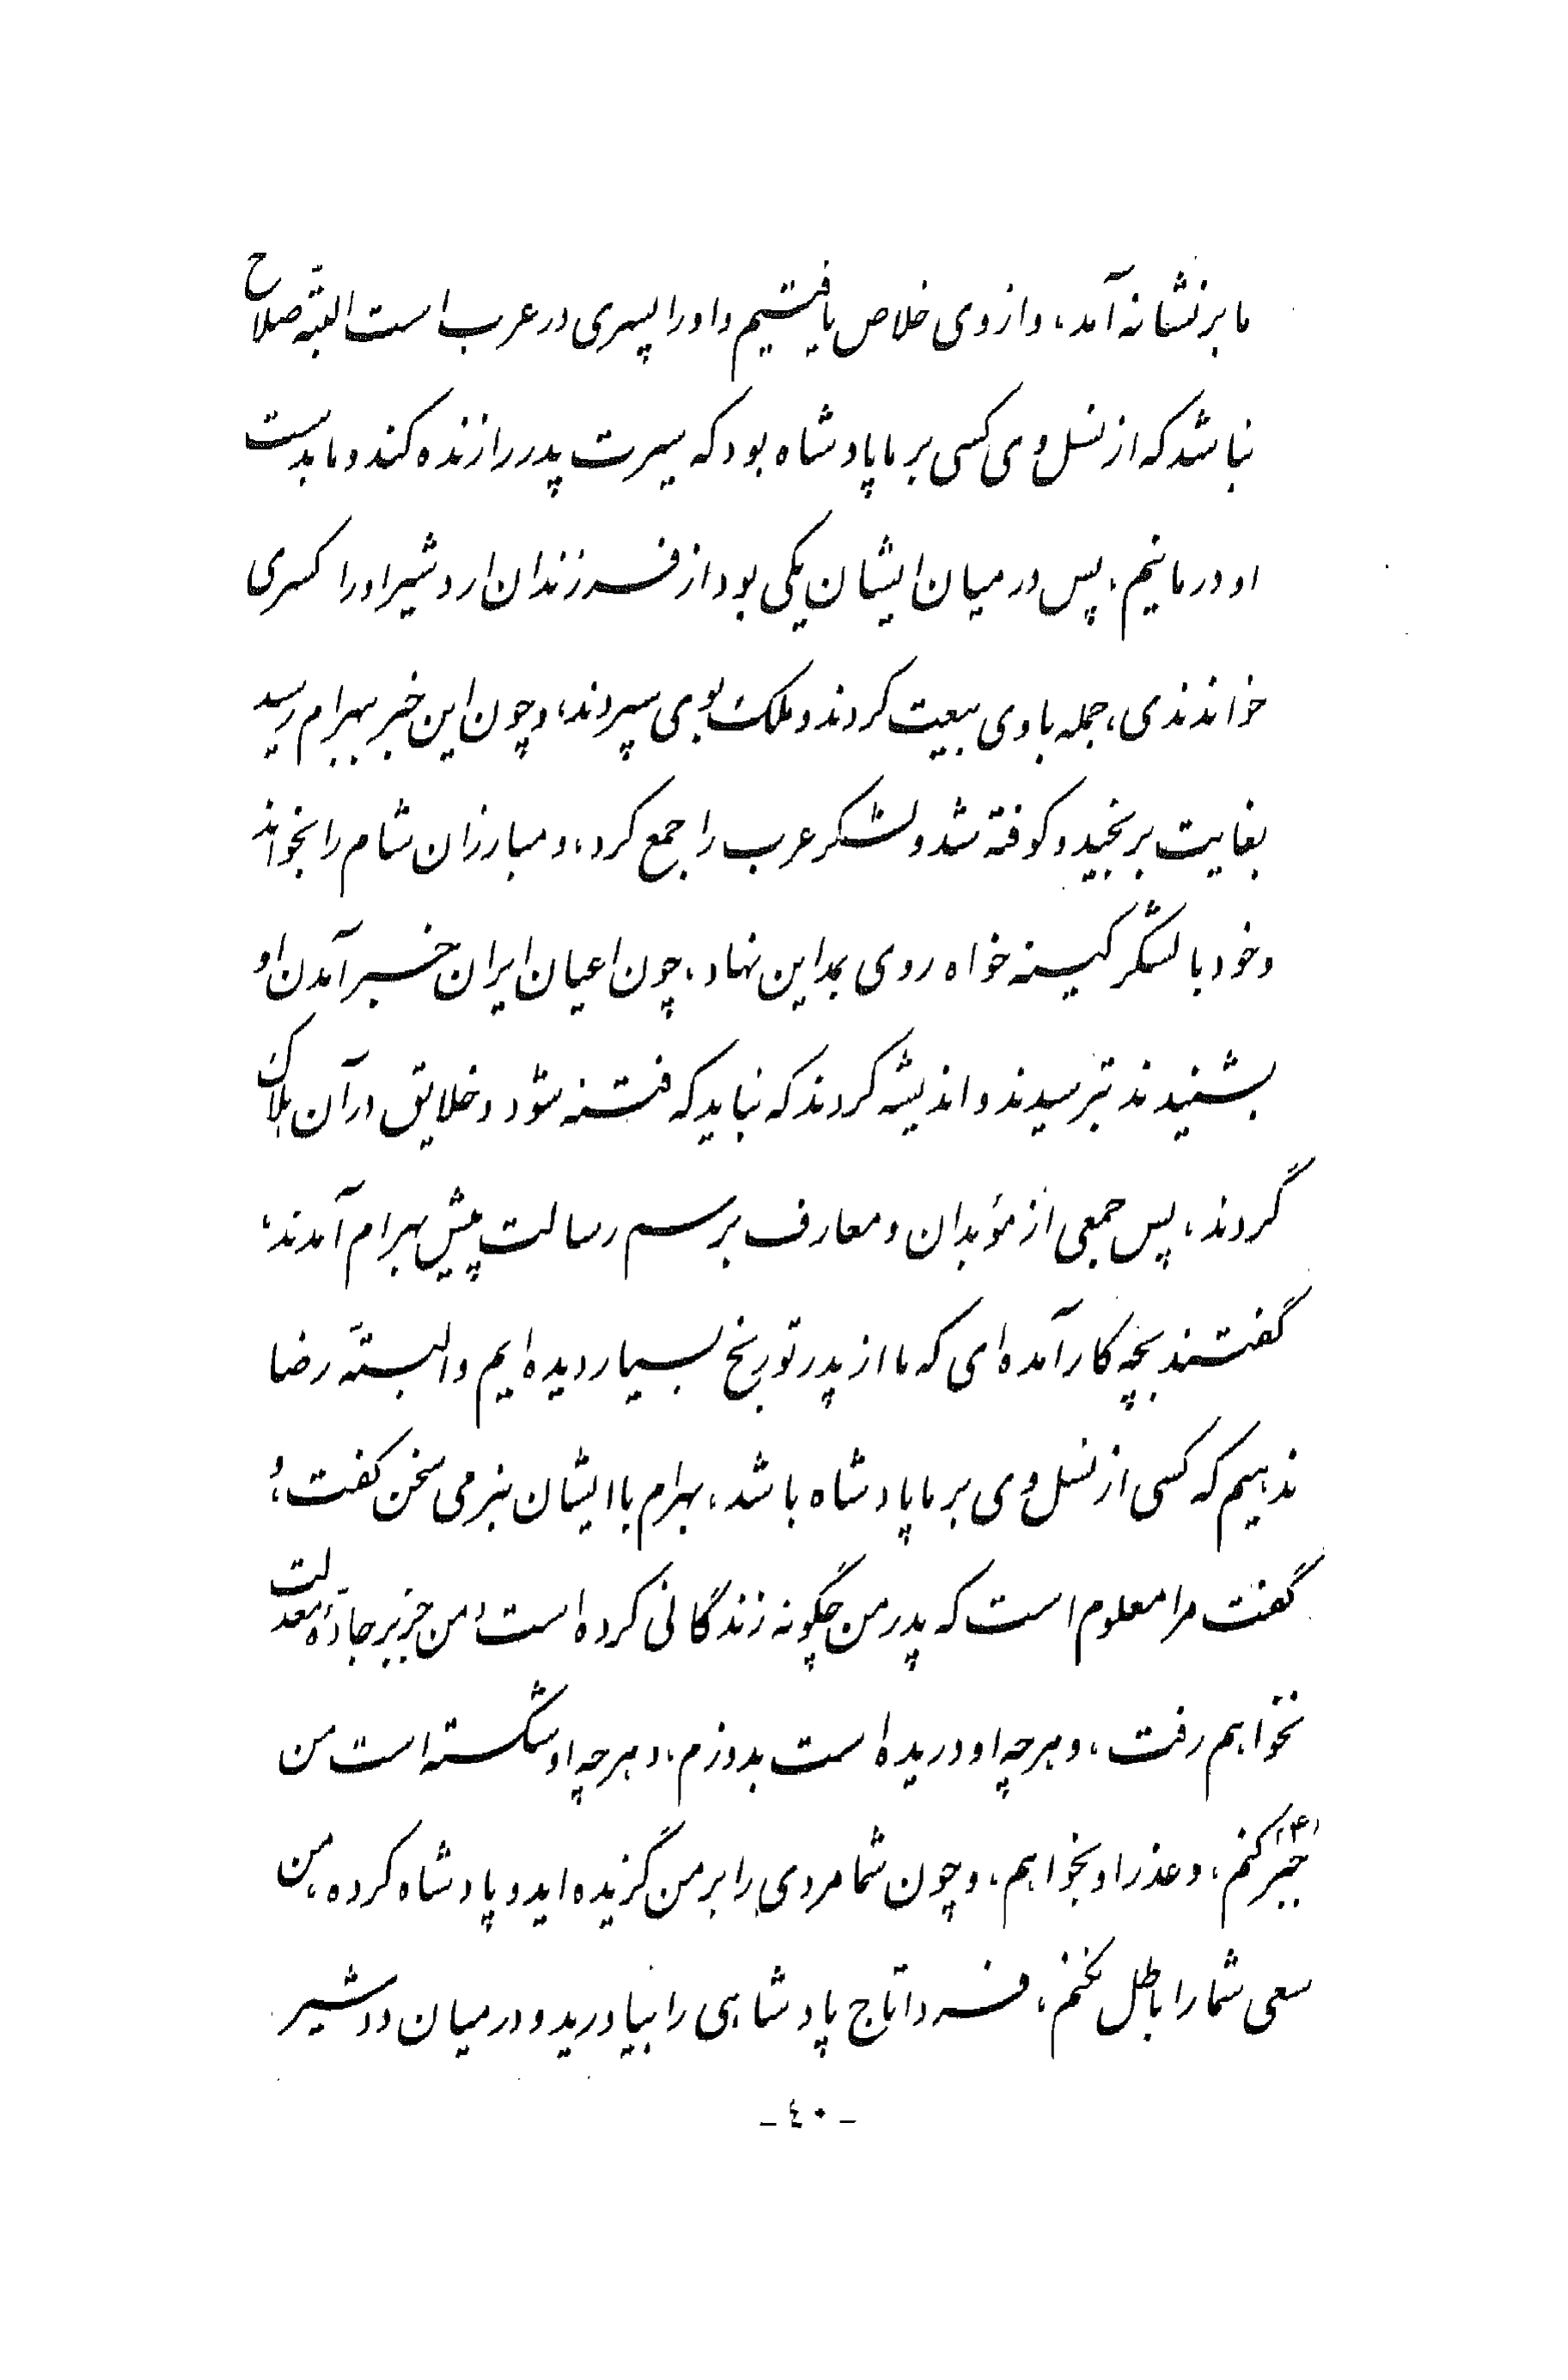 ما بر نشانه آمد، و از وی خلاص یافتیم و او را پسری در عرب است البتّه صلاح
نباشد که از نسل وی کسی بر ما پادشاه بود که سیرت پدر را زنده کند و ما بدست
او درمانیم، پس در میان ایشان یکی بود از فرزندان اردشیر او را کسری
خواندندی، جمله با وی بیعت کردند و ملک بوی سپردند، و چون این خبر ببهرام رسید
بغایت برنجید و کوفته شد و لشکر عرب را جمع کرد، و مبارزان شام را بخواند
و خود با لشگر کینه خواه روی بمداین نهاد، چون اعیان ایران خبر آمدن او
بشنیدند بترسیدند و اندیشه کردند که نباید که فتنه شود و خلایق در آن هلاک
گردند، پس جمعی از مؤبدان و معارف برسم رسالت پیش بهرام آمدند،
گفتند بچه کار آمده‌ای که ما از پدر تو رنج بسیار دیده‌ایم و البتّه رضا
ندهیم که کسی از نسل وی بر ما پادشاه باشد، بهرام با ایشان بنرمی سخن گفت، و
گفت مرا معلوم است که پدر من چگونه زندگانی کرده است، من جز بر جادّهٔ معدلت
نخواهم رفت، و هر چه او دریده است بدوزم، و هر چه او شکسته است من
جبر(۴) کنم، و عذر او بخواهم، و چون شما مردی را بر من گزیده‌اید و پادشاه کرده، من
سعی شما را باطل نکنم، فردا تاج پادشاهی را بیاورید و در میان دو شیر
- ٤٠ -